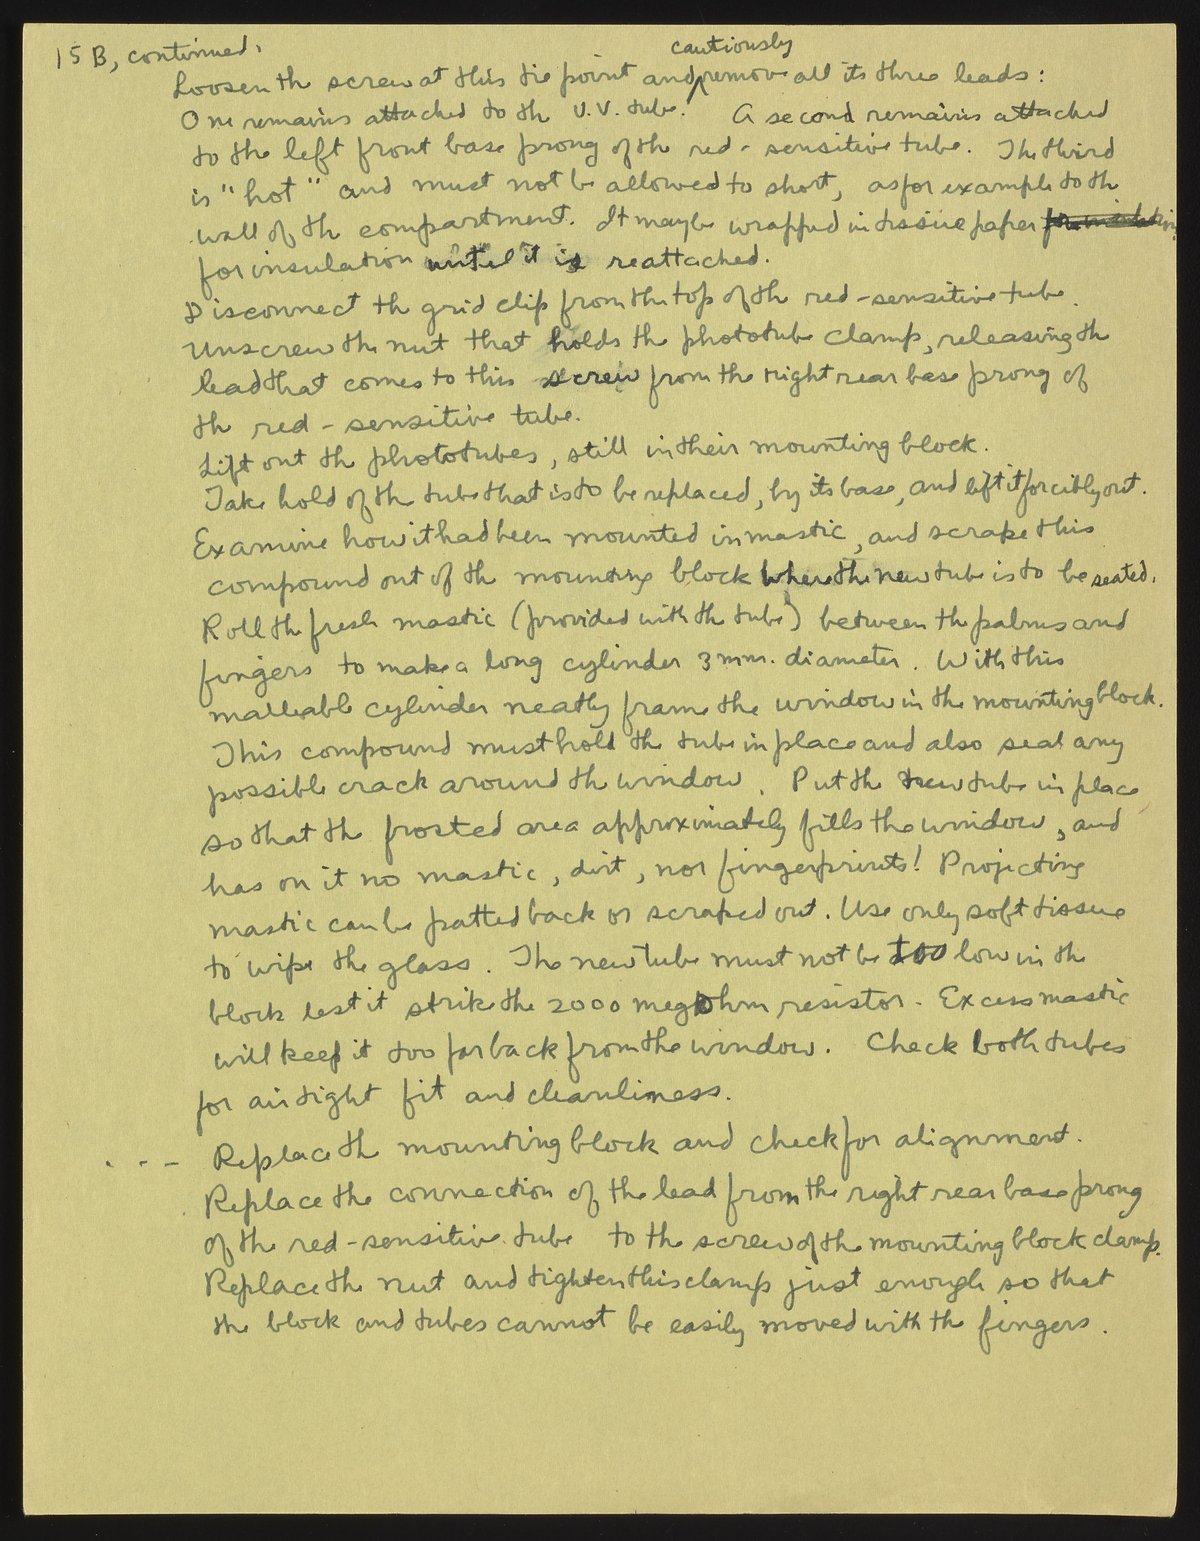 15 B, continued.
cautiously
Loosen the screw at this tie point and remove all its three leads:
One remains attached to the U.V. tube! A second remains attached
to the left front base prong of the red-sensitive tube. The third
is "hot" and must not be allowed to short, as for example to the
wall of the compartment. It may be wrapped in tissue paper
for insulation until it is reattached.
Disconnect the grid clip from the top of the red-sensitive tube.
Unscrew the nut that holds the phototube clamp, releasing the
lead that comes to this screw from the right rear base prong of
the red-sensitive tube.
Lift out the phototubes, still in their mounting block.
Take hold of the tube that is to be replaced, by its base, and lift it forcibly out.
Examine how it had been mounted in mastic, and scrape this
compound out of the mounting block where the new tube is to be seated.
Roll the fresh mastic (provided with the tube) between the palms and
fingers to make a long cylinder 3 mm. diameter. With this
malleable cylinder neatly frame the window in the mounting block.
This compound must hold the tube in place and also seal any
possible crack around the window. Put the new tube in place
so that the frosted area approximately fills the window, and
has on it no mastic, dirt, nor fingerprints! Projecting
mastic can be patted back or scraped out. Use only soft tissue
to wipe the glass. The new tube must not be too low in the
block lest it strike the 2000 megohm resistor. Excess mastic
will keep it too far back from the window. Check both tubes
for airtight fit and cleanliness.
. - - Replace the mounting block and check for alignment.
Replace the connection of the lead from the right rear base prong
of the red-sensitive tube to the screw of the mounting block clamp.
Replace the nut and tighten this clamp just enough so that
the block and tubes cannot be easily moved with the fingers.